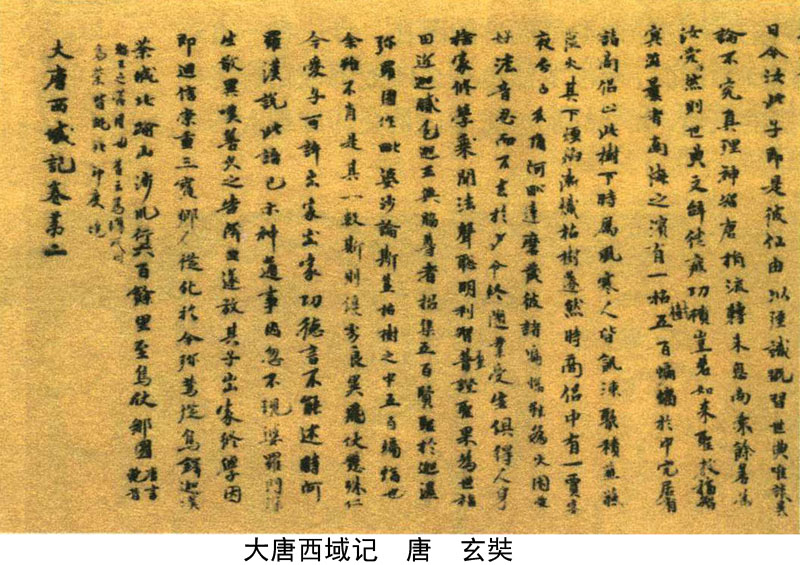 日今汝此子即是彼仙由以强識翫習世典唯談異
論不究真理神智唐捐流轉未息尚乘餘善為
汝愛然則世典文辭徒疲功績豈若如来聖教福智
冥滋曩者南海之濱有一枯樹五百蝙蝠於中穴居有
諸商侣止此樹下時属風寒人皆飢凍聚積樵蘇
蘊火其下煙焰漸熾枯樹遂然時商侣中有一賈客
夜分已後誦阿毗達磨藏彼諸蝙蝠雖為火困愛
好法音忍而不去於夕命終隨業受生俱得人身
捨家修學乘聞法聲聡明利智並證聖果為世福
田近迦膩色迦王與脇尊者招集五百賢聖於迦濕
弥羅國作毗婆沙論斯並枯樹之中五百蝙蝠也
余雖不肖是其一數斯則優劣良異飛伏懸殊仁
今愛子可許出家出家功德言不能述時阿
羅漢說此語已示神通事因忽不現婆羅門深
生敬異嘆善久之告隣里遂放其子出家修學因
即迴信崇重三寶鄉人從化於今弥篤從烏鐸迦漢
荼城北踰山涉川行六百餘里至烏仗那國唐言苑昔
輪王之苑囿也舊云烏場或曰
烏荼皆訛北印度境
大唐西域記卷第二
大唐西域记 唐 玄奘